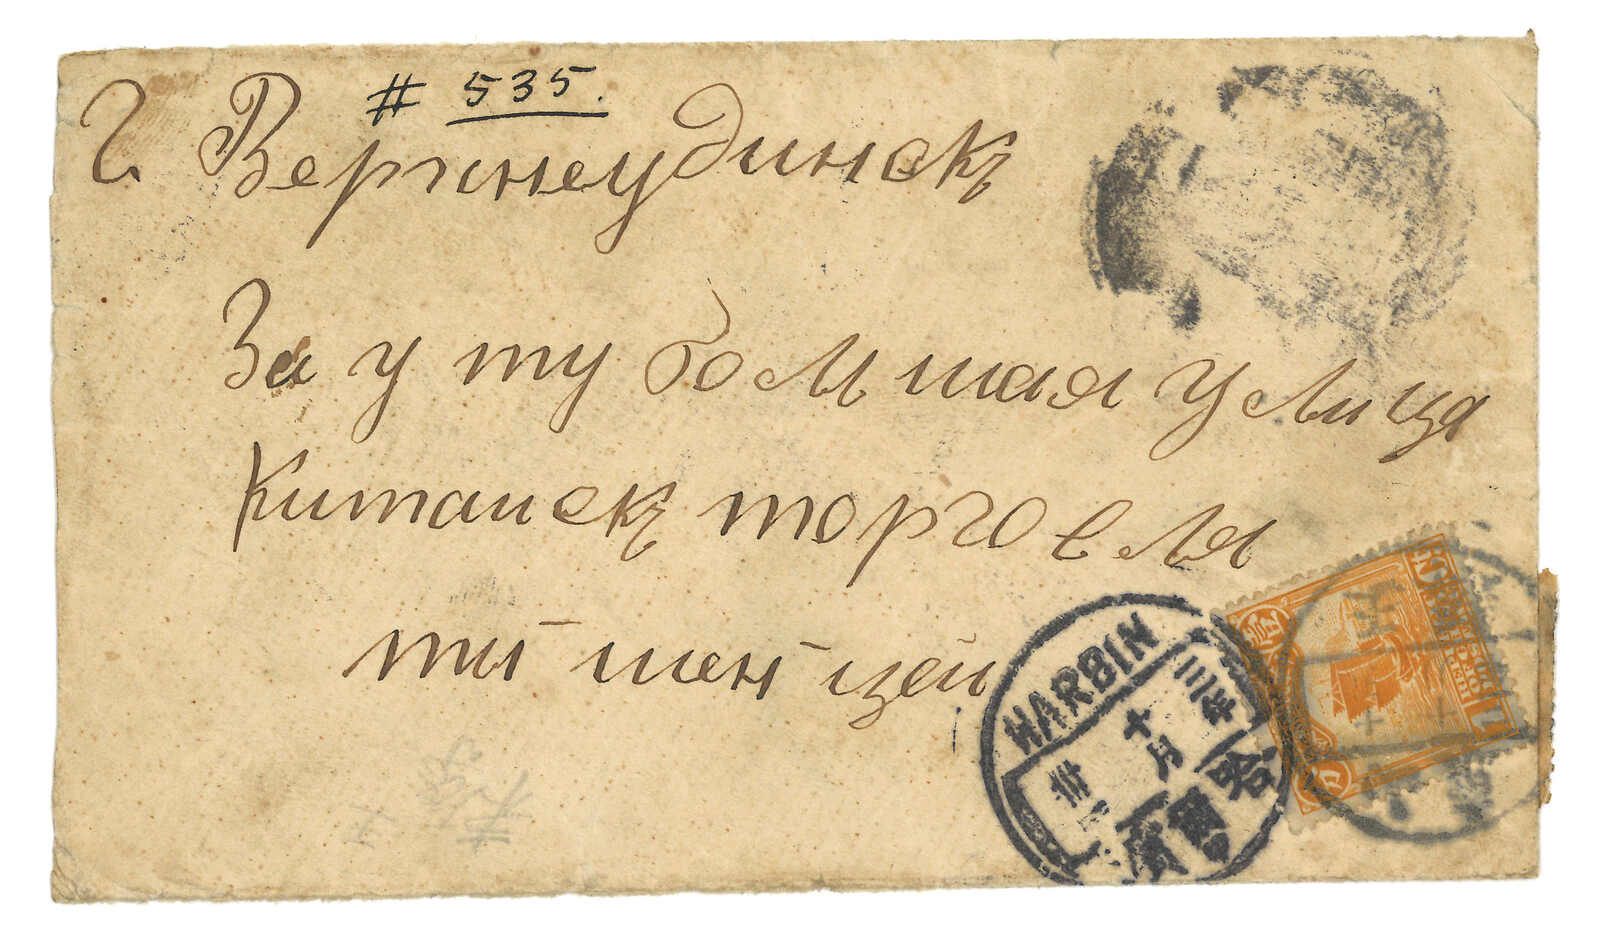 # 535.
Г. Верхнеудинскъ
За уту большая улица
Китаискъ торговля
ты шен цеи
HARBIN
三年
十月
卅
哈爾賓